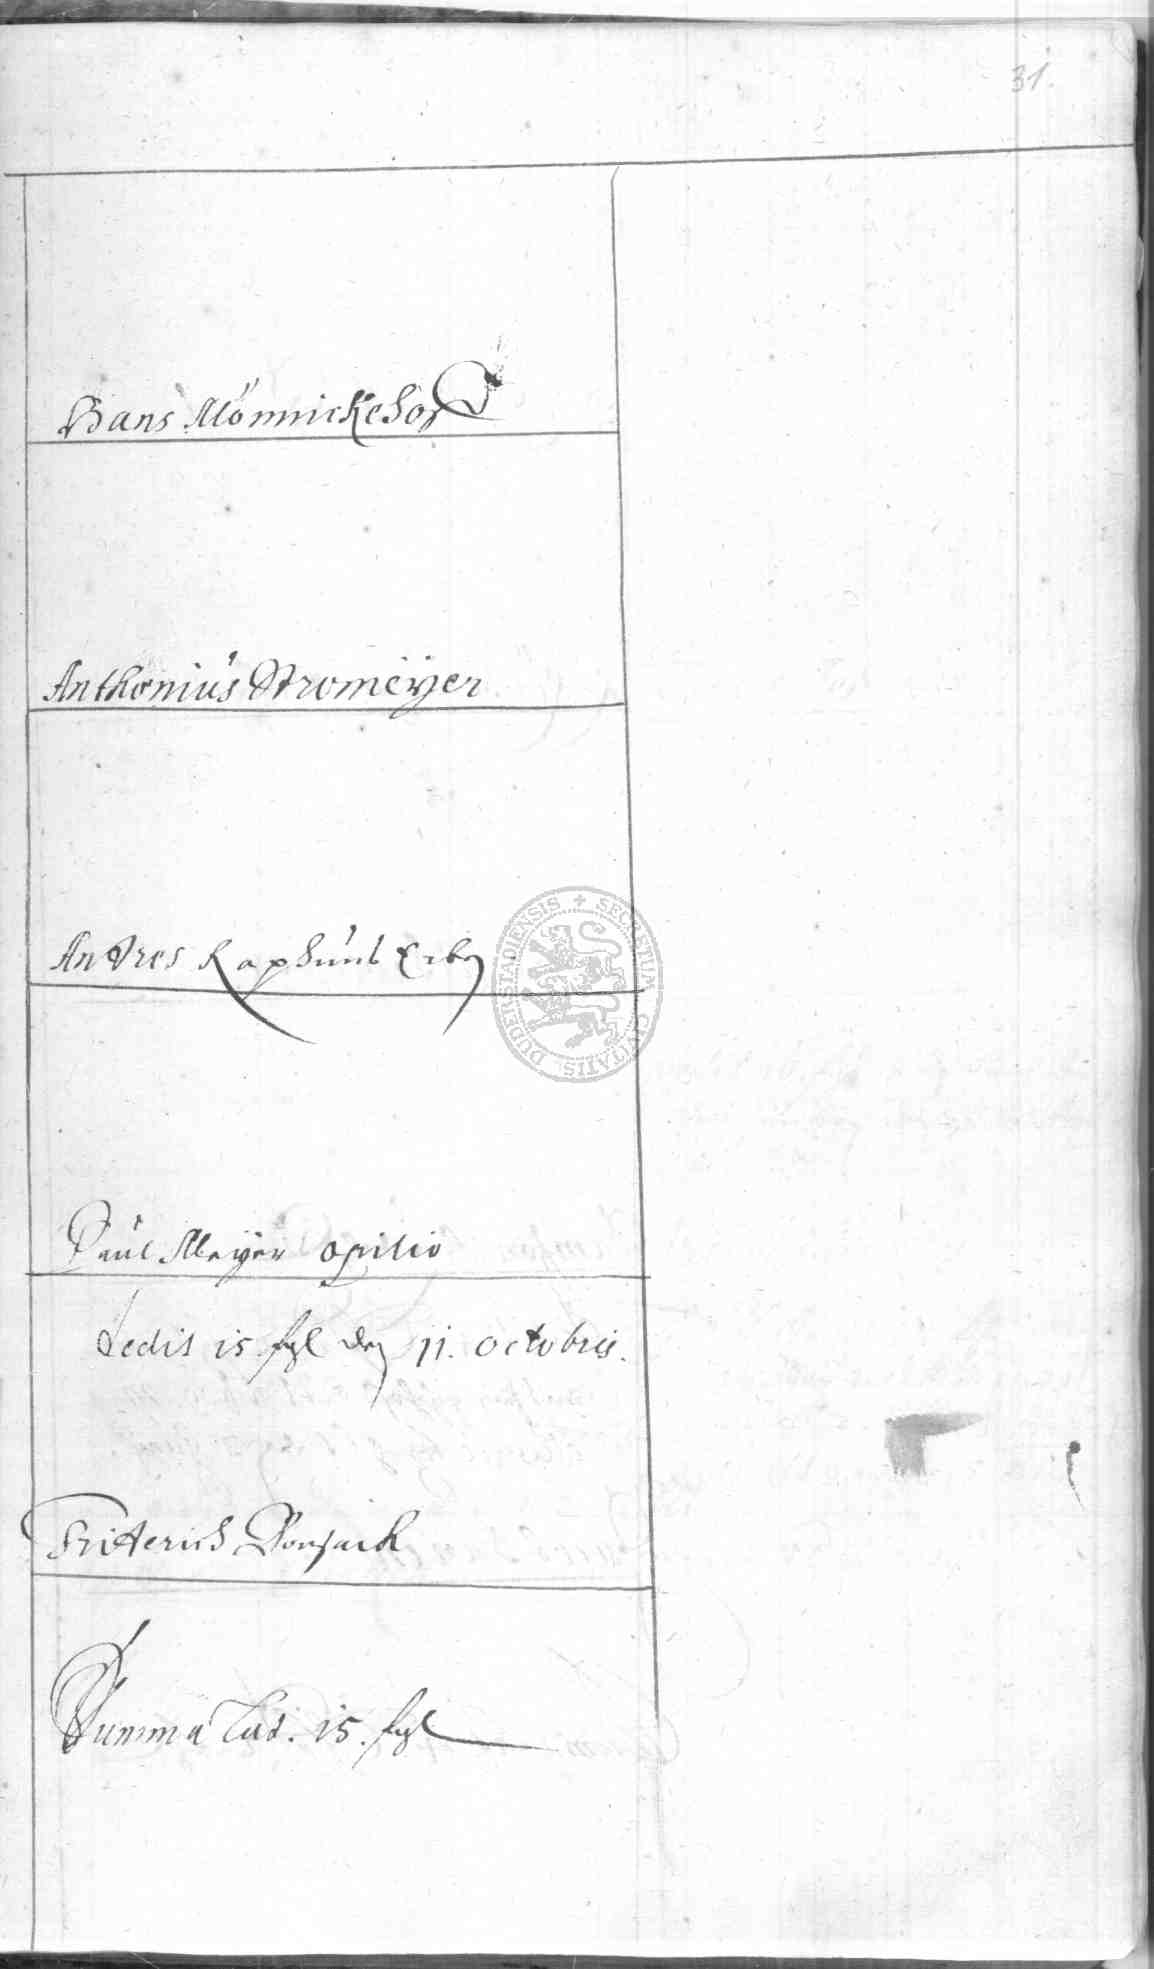 31.
Hans Mönnickehof
Anthoniüs Stromeÿer
Andres Raphünb Erben
Paül Meÿer opilio
dedit 15 ßgl den 11. octobris.
Friderich
Summa Lat. 15. ßgl
SECRETUM CIVITATIS DUDERSTADIENSIS